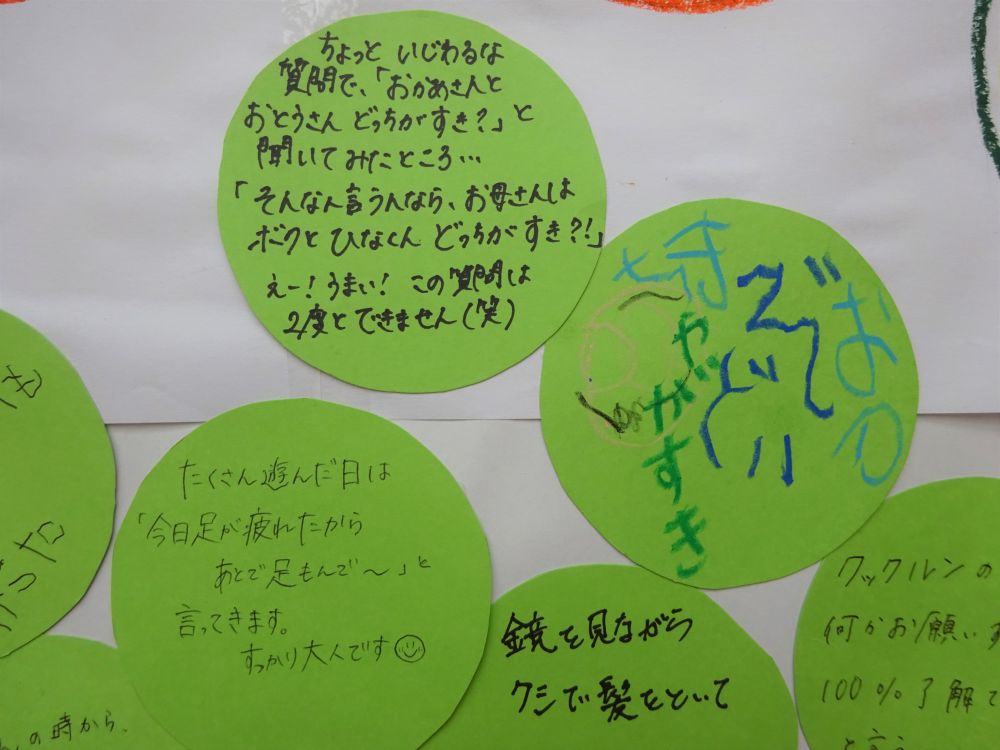 ちょっと いじわるな
質問で、「おかあさんと
おとうさん どっちがすき？」と
聞いてみたところ…
「そんなん言うんなら、お母さんは
ボクと ひなくん どっちが すき？！」
えー！うまい！ この質問は
2度とできません（笑）
やがすき
たくさん遊んだ日は
「今日足が疲れたから
あとで足もんで～」と
言ってきます。
すっかり大人です
鏡を見ながら
クシで髪をといて
クックルンの
何かお願い
100％了解
の時から、